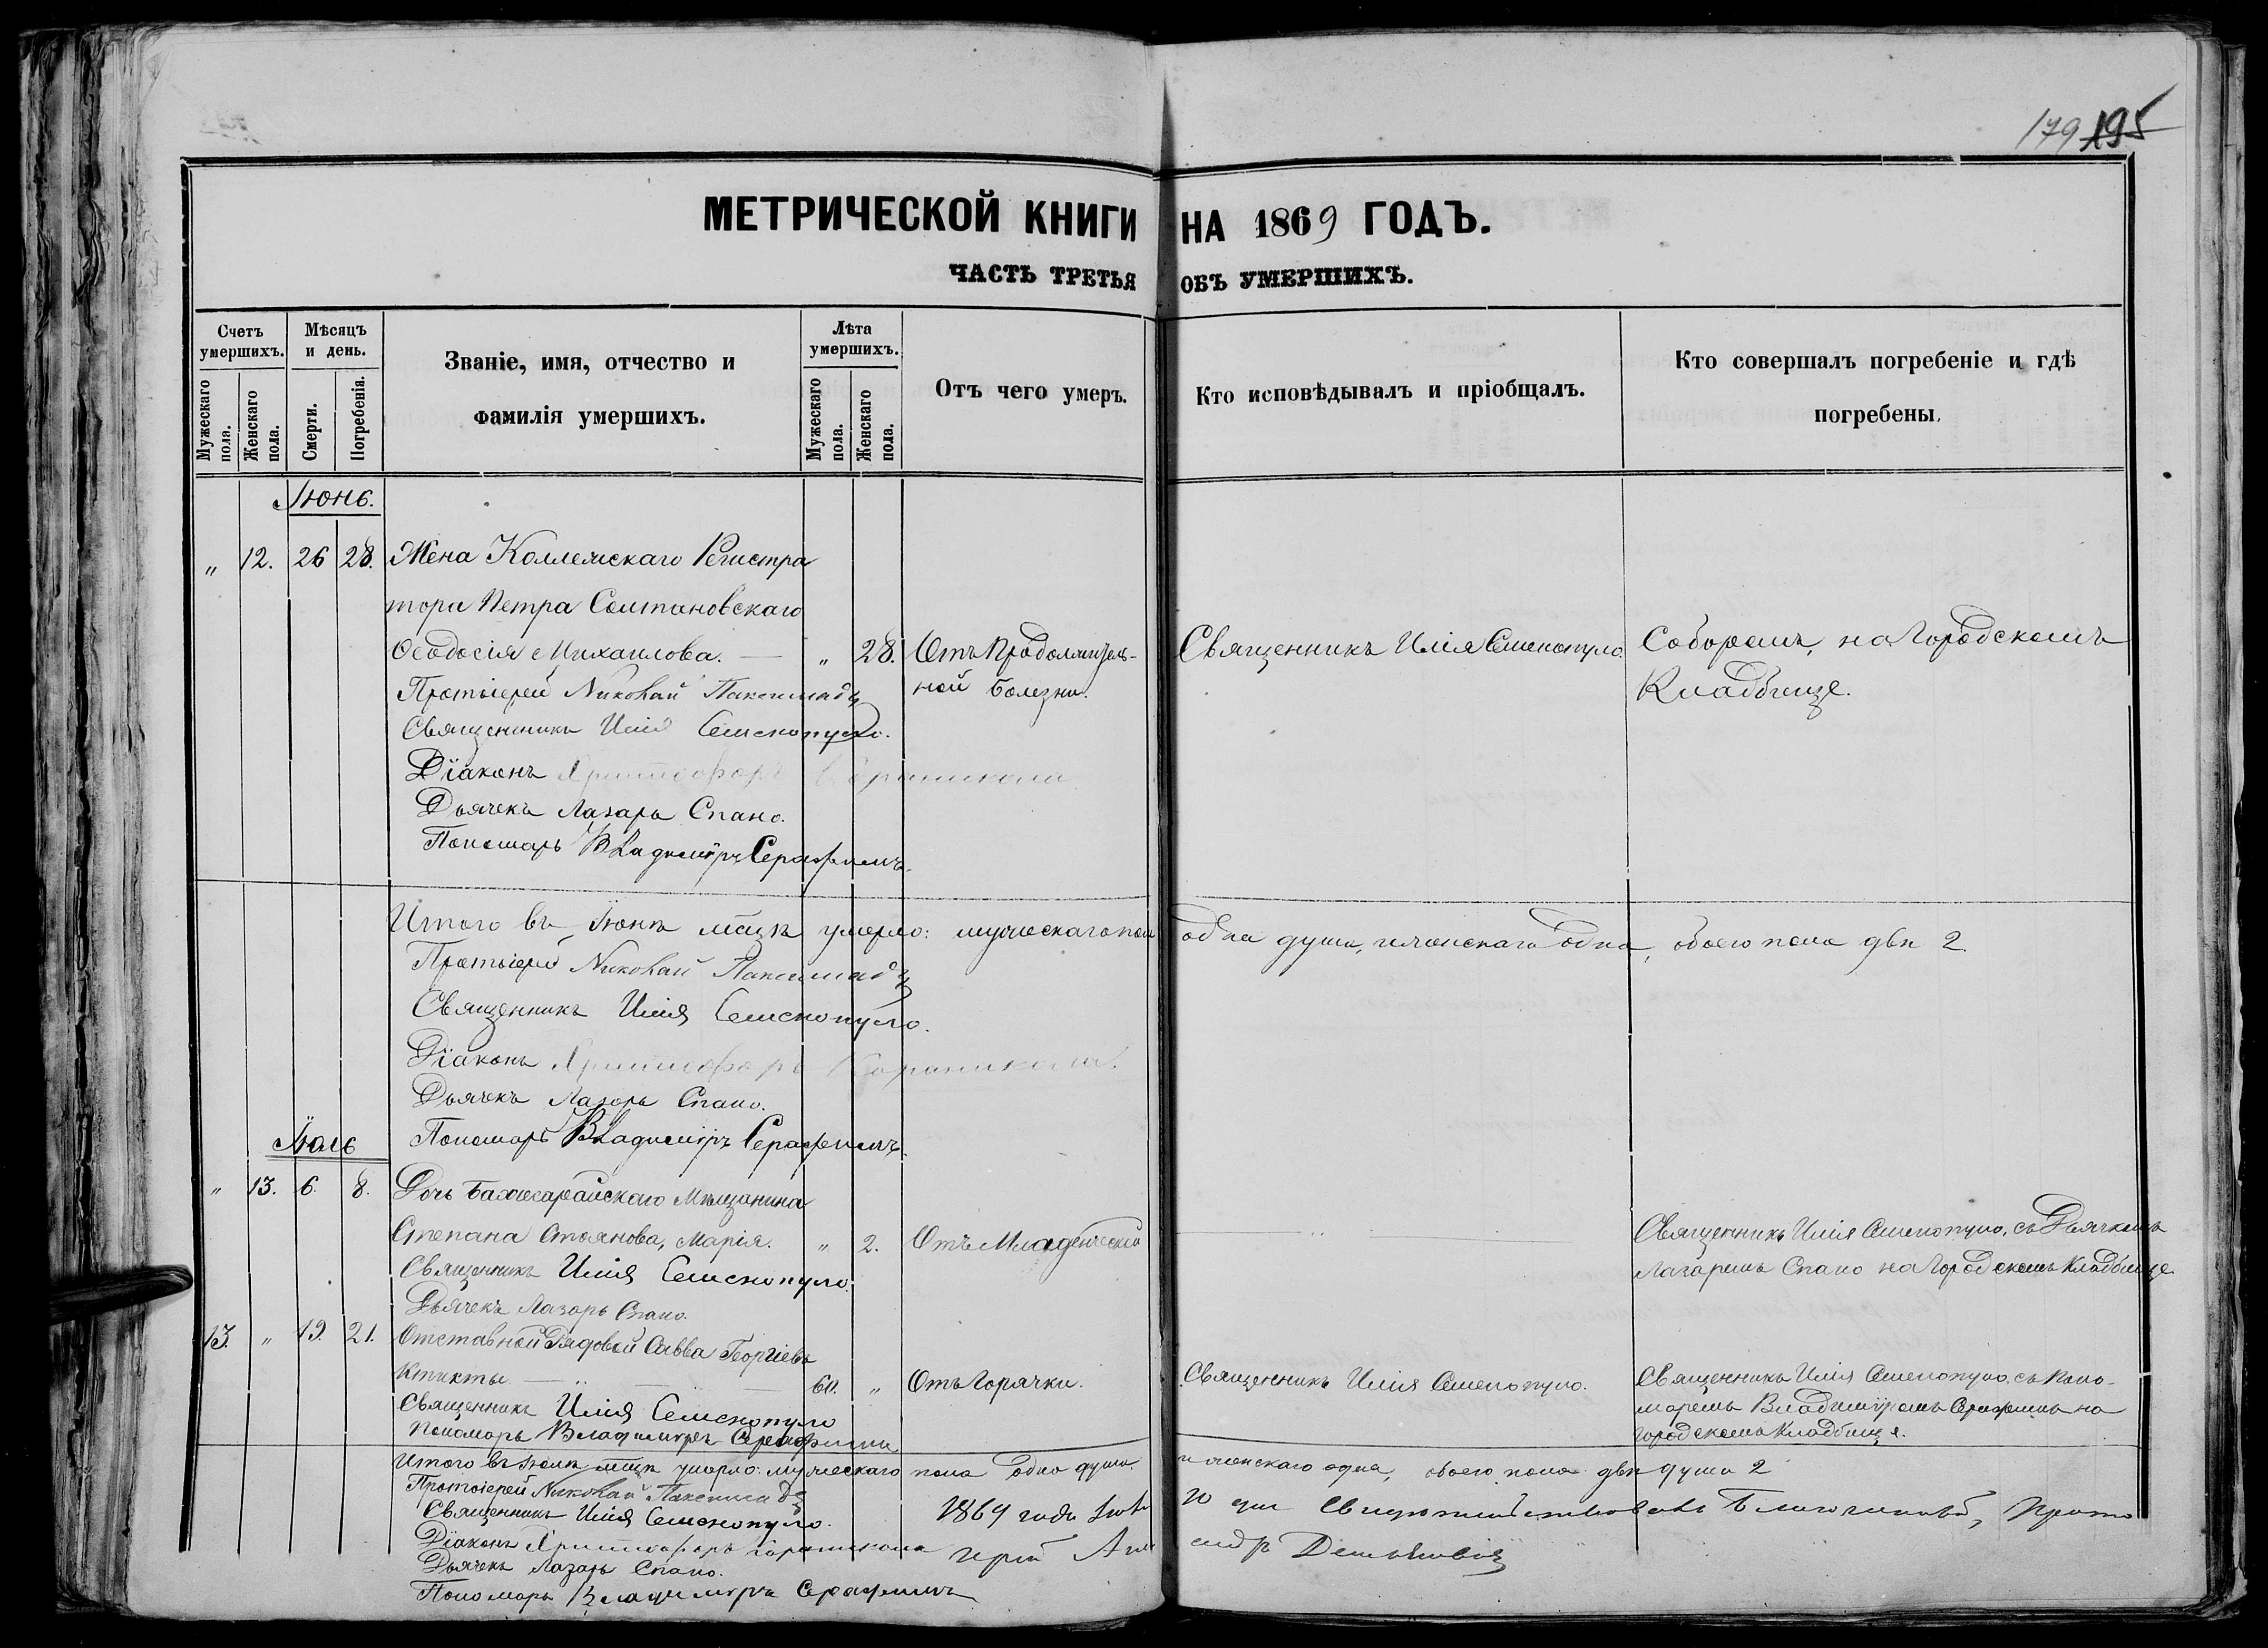 179 195
МЕТРИЧЕСКОЙ КНИГИ НА 1869 ГОДЪ.
ЧАСТЬ ТРЕТЬЯ ОБЪ УМЕРШИХЪ.
Счетъ умершихъ.
Мужескаго пола.
Женскаго пола.
Мѣсяцъ и день.
Смерти.
Погребенія.
Званіе, имя, отчество и
фамилія умершихъ.
Лѣта умершихъ.
Мужескаго пола.
Женскаго пола.
Отъ чего умеръ.
Кто исповѣдывалъ и пріобщалъ.
Кто совершалъ погребеніе и гдѣ
погребены.
Іюнь.
" 12. 26 28. Жена Коллежскаго Регистра
тора Петра Солтановскаго
Ѳеодосія Михаилова. — " 28. Отъ Продолжитель- Священникъ Илія Семенопуло. Соборомъ, на Городскомъ
Протоіерей Николай ной Болезни. Кладбище.
Священникъ Илія Семенопуло.
Діаконъ Христофоръ
Дьячекъ Лазарь Спано.
Пономарь Владиміръ Серафимъ.
Итого въ Іюнѣ м͠цѣ умерло: мужескаго пола одна душа, женскаго одна, обоего пола двѣ 2.
Протоіерей Николай
Священникъ Илія Семенопуло.
Діаконъ Христофоръ
Дьячекъ Лазарь Спано.
Пономарь Владиміръ Серафимъ.
Іюль
" 13. 6. 8. Дочь Бахчисарайскаго Мѣщанина
Степана Стоянова, Марія. " 2. Отъ Младенческой Священникъ Илія Семенопуло, съ Дьячкомъ
Священникъ Илія Семенопуло. Лазаремъ Спано на Городскомъ Кладбище.
Дьячекъ Лазарь Спано.
13. " 19. 21. Отставной Рядовой Савва Георгіевъ
60. " Отъ Горячки. Священникъ Илія Семенопуло. Священникъ Илія Семенопуло, съ Поно-
Священникъ Илія Семенопуло маремъ Владиміромъ Серафимъ на
Пономарь Владиміръ Серафимъ Городскомъ Кладбище.
Итого въ Іюлѣ м͠цѣ умерло: мужескаго пола одна душа женскаго одна, обоего пола двѣ души 2
Протоіерей Николай
Священникъ Илія Семенопуло. 1869 года дня свидѣтельствовалъ Благочинный, Прото
Діаконъ Христофоръ іерей
Дьячекъ Лазарь Спано.
Пономарь Владиміръ Серафимъ